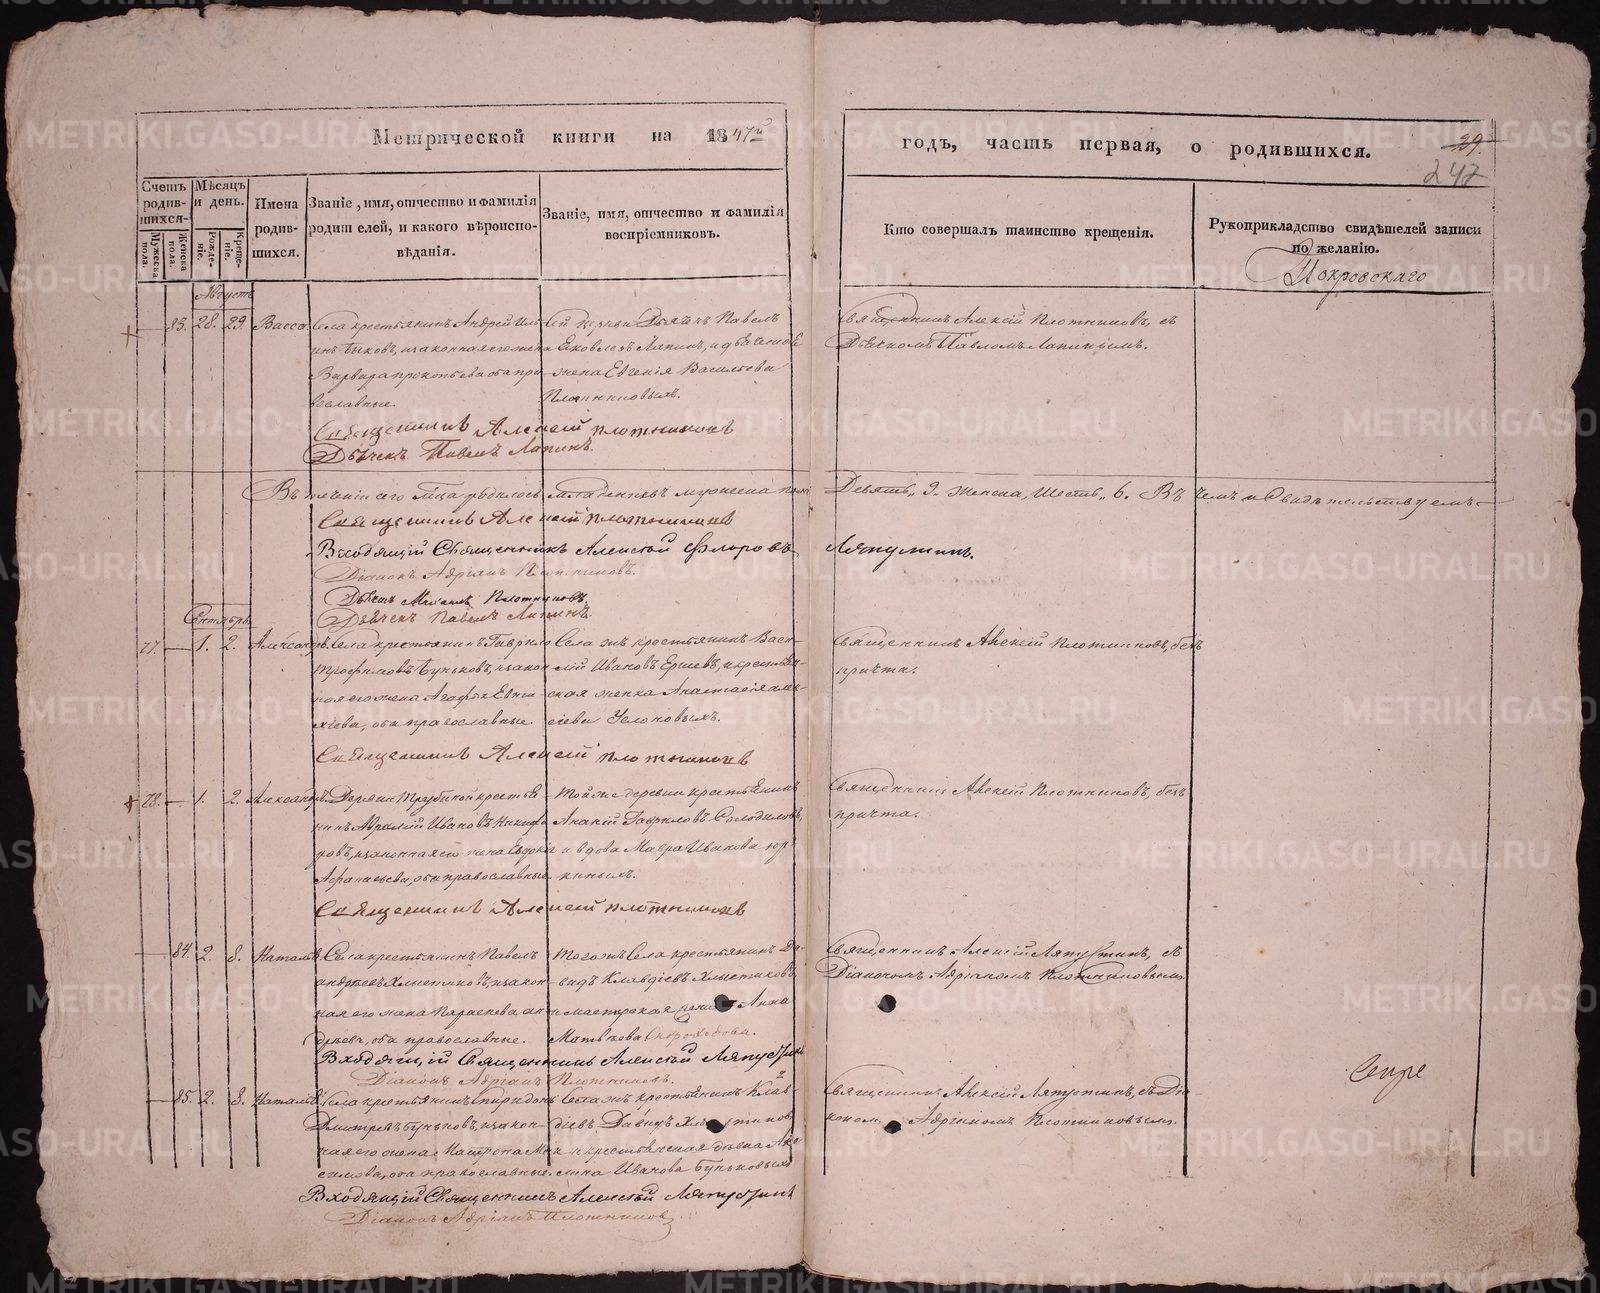 Метрической книги на 1847й
годъ, часть первая, о родившихся.
29.
247
Счетъ родившихся.
Мужеска пола.
Женска пола.
Мѣсяцъ и день.
Рожденіе.
Крещеніе.
Имена родившихся.
Званіе, имя, отчество и фамилія родителей, и какого вѣроисповѣданія.
Званіе, имя, отчество и фамилія воспріемниковъ.
Кто совершалъ таинство крещенія.
Рукоприкладство свидѣтелей записи по желанію.
Покровскаго
Августъ
83. 28. 29. Васса.
Села крестьянинъ Андрей Иль-
инъ Быковъ, и законная его жена
Варвара Прокопьева оба пра-
вославные.
Сей Церкви Дьячекъ Павелъ
Яковлевъ Лапинъ, и дьячеця
жена Евгенія Васильева
Плотникова.
Священникъ Алексій Плотниковъ, съ
Дьячкомъ Павломъ Лапинымъ.
Священникъ Алексій Плотниковъ
Дьячекъ Павелъ Лапинъ.
Въ теченіи сего м-ца родилось младенцевъ мужеска пола
Девять, 9. женска, Шесть, 6. Въ чемъ и свидѣтельствуемъ
Священникъ Алексій Плотниковъ
Входящій Священникъ Алексѣй Флоровъ
Ляпустинъ.
Діаконъ Адріанъ Плотниковъ.
Дьячекъ Плотниковъ
Дьячекъ Павелъ Лапинъ.
Сентябрь
77. 1. 2. Александръ.
Села крестьянинъ Гаврило
Трофимовъ Буньковъ, и закон-
ная его жена Агафья Евти-
хіева, оба православные.
Села жъ крестьянинъ Васи-
лій Ивановъ Ершевъ, и крестьян-
ская женка Анастасія Але-
ксіева Усоновыхъ.
Священникъ Алексій Плотниковъ, безъ
причта.
Священникъ Алексій Плотниковъ
78. 1. 2. Александръ.
Деревни Трубиной крестья-
нинъ Аврамій Ивановъ Никифо-
ровъ, и законная его жена Евдокія
Афанасьева, оба православные.
Той же деревни крестьянинъ
Ананій Гавриловъ Солодиловъ,
и вдова Мавра Иванова
Священникъ Алексій Плотниковъ, безъ
причта.
Священникъ Алексій Плотниковъ
84. 2. 8. Наталья.
Села крестьянинъ Павелъ
Андреевъ Хмѣтиковъ, и закон-
ная его жена Параскева Ан-
дреева, оба православные.
Того жъ Села крестьянинъ Да-
видъ Клавдіевъ Хлыстиковъ,
и мастерская жена Анна
Матвѣева Скороходова.
Священникъ Алексій Ляпустинъ, съ
Діакономъ Адріаномъ Плотниковымъ.
Входящій Священникъ Алексѣй Ляпустинъ
Діаконъ Адріанъ Плотниковъ.
85. 2. 8. Наталья.
Села крестьянинъ Спиридонъ
Дмитревъ Буньковъ, и закон-
ная его жена Матрона Мак-
симова, оба православные.
Села жъ крестьянинъ Клав-
діевъ Давидъ Хлыстиковъ
и крестьянская дѣвка Аку-
лина Иванова Буньковыхъ
Священникъ Алексій Ляпустинъ, съ Діа-
кономъ Адріаномъ Плотниковымъ.
Входящій Священникъ Алексѣй Ляпустинъ
Діаконъ Адріанъ Плотниковъ
METRIKI.GASO-URAL.RU